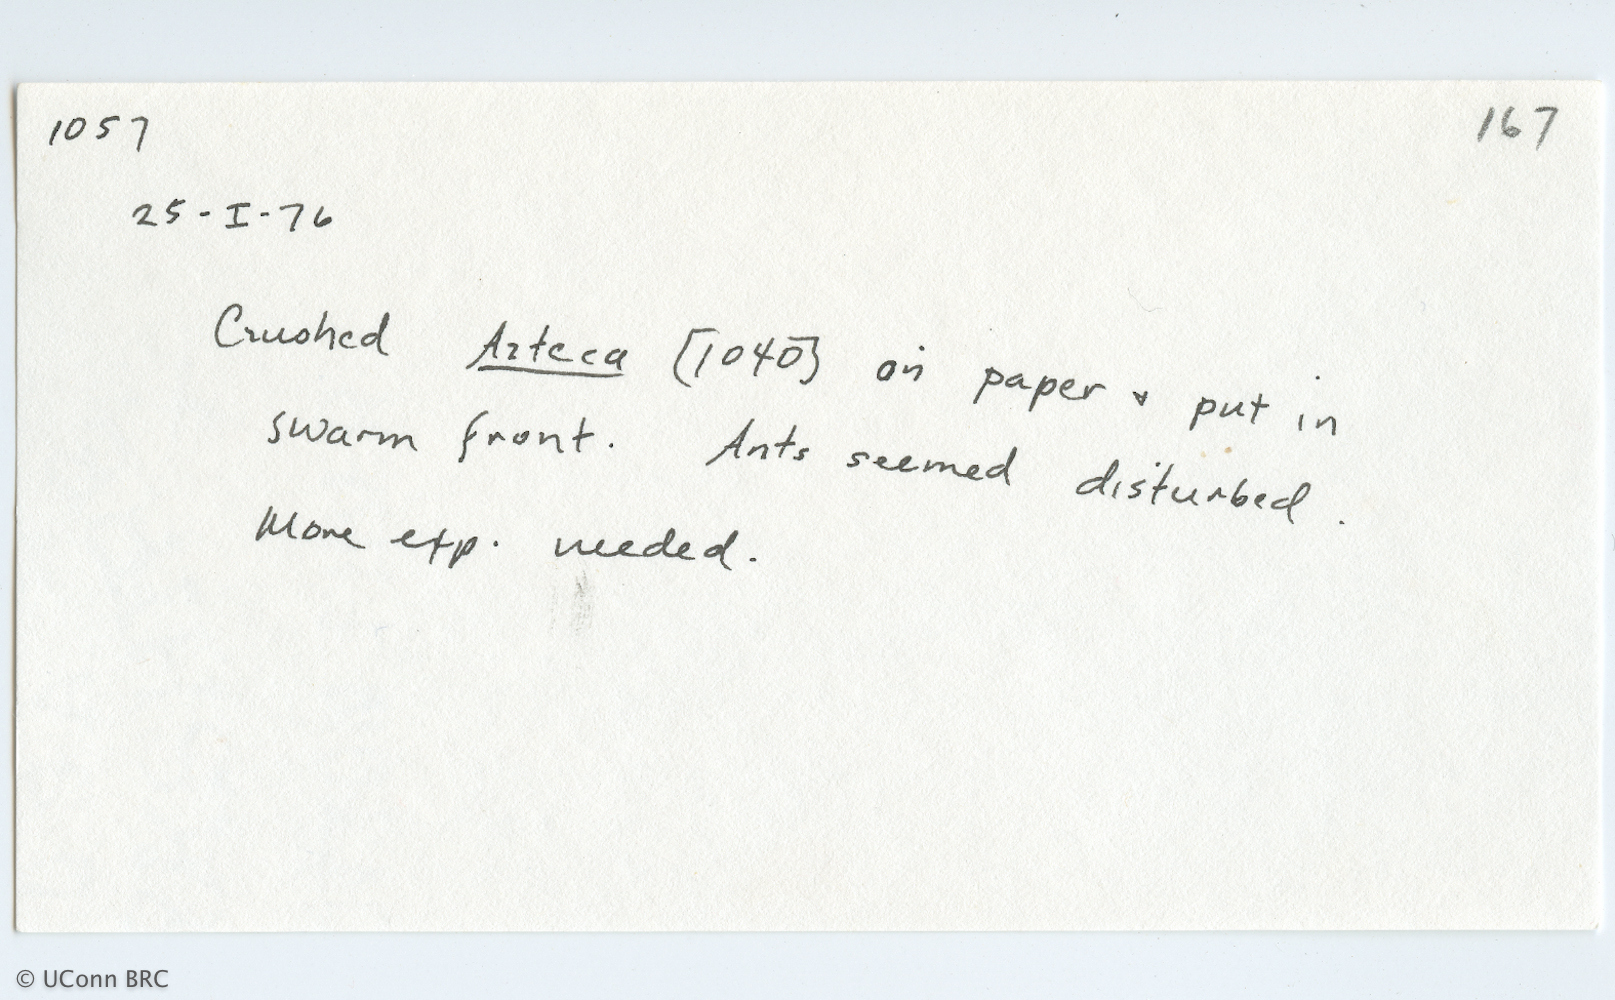 1057
167
25-I-76
Crushed Azteca [1040] on paper & put in
swarm front. Ants seemed disturbed.
More exp. needed.
© UConn BRC